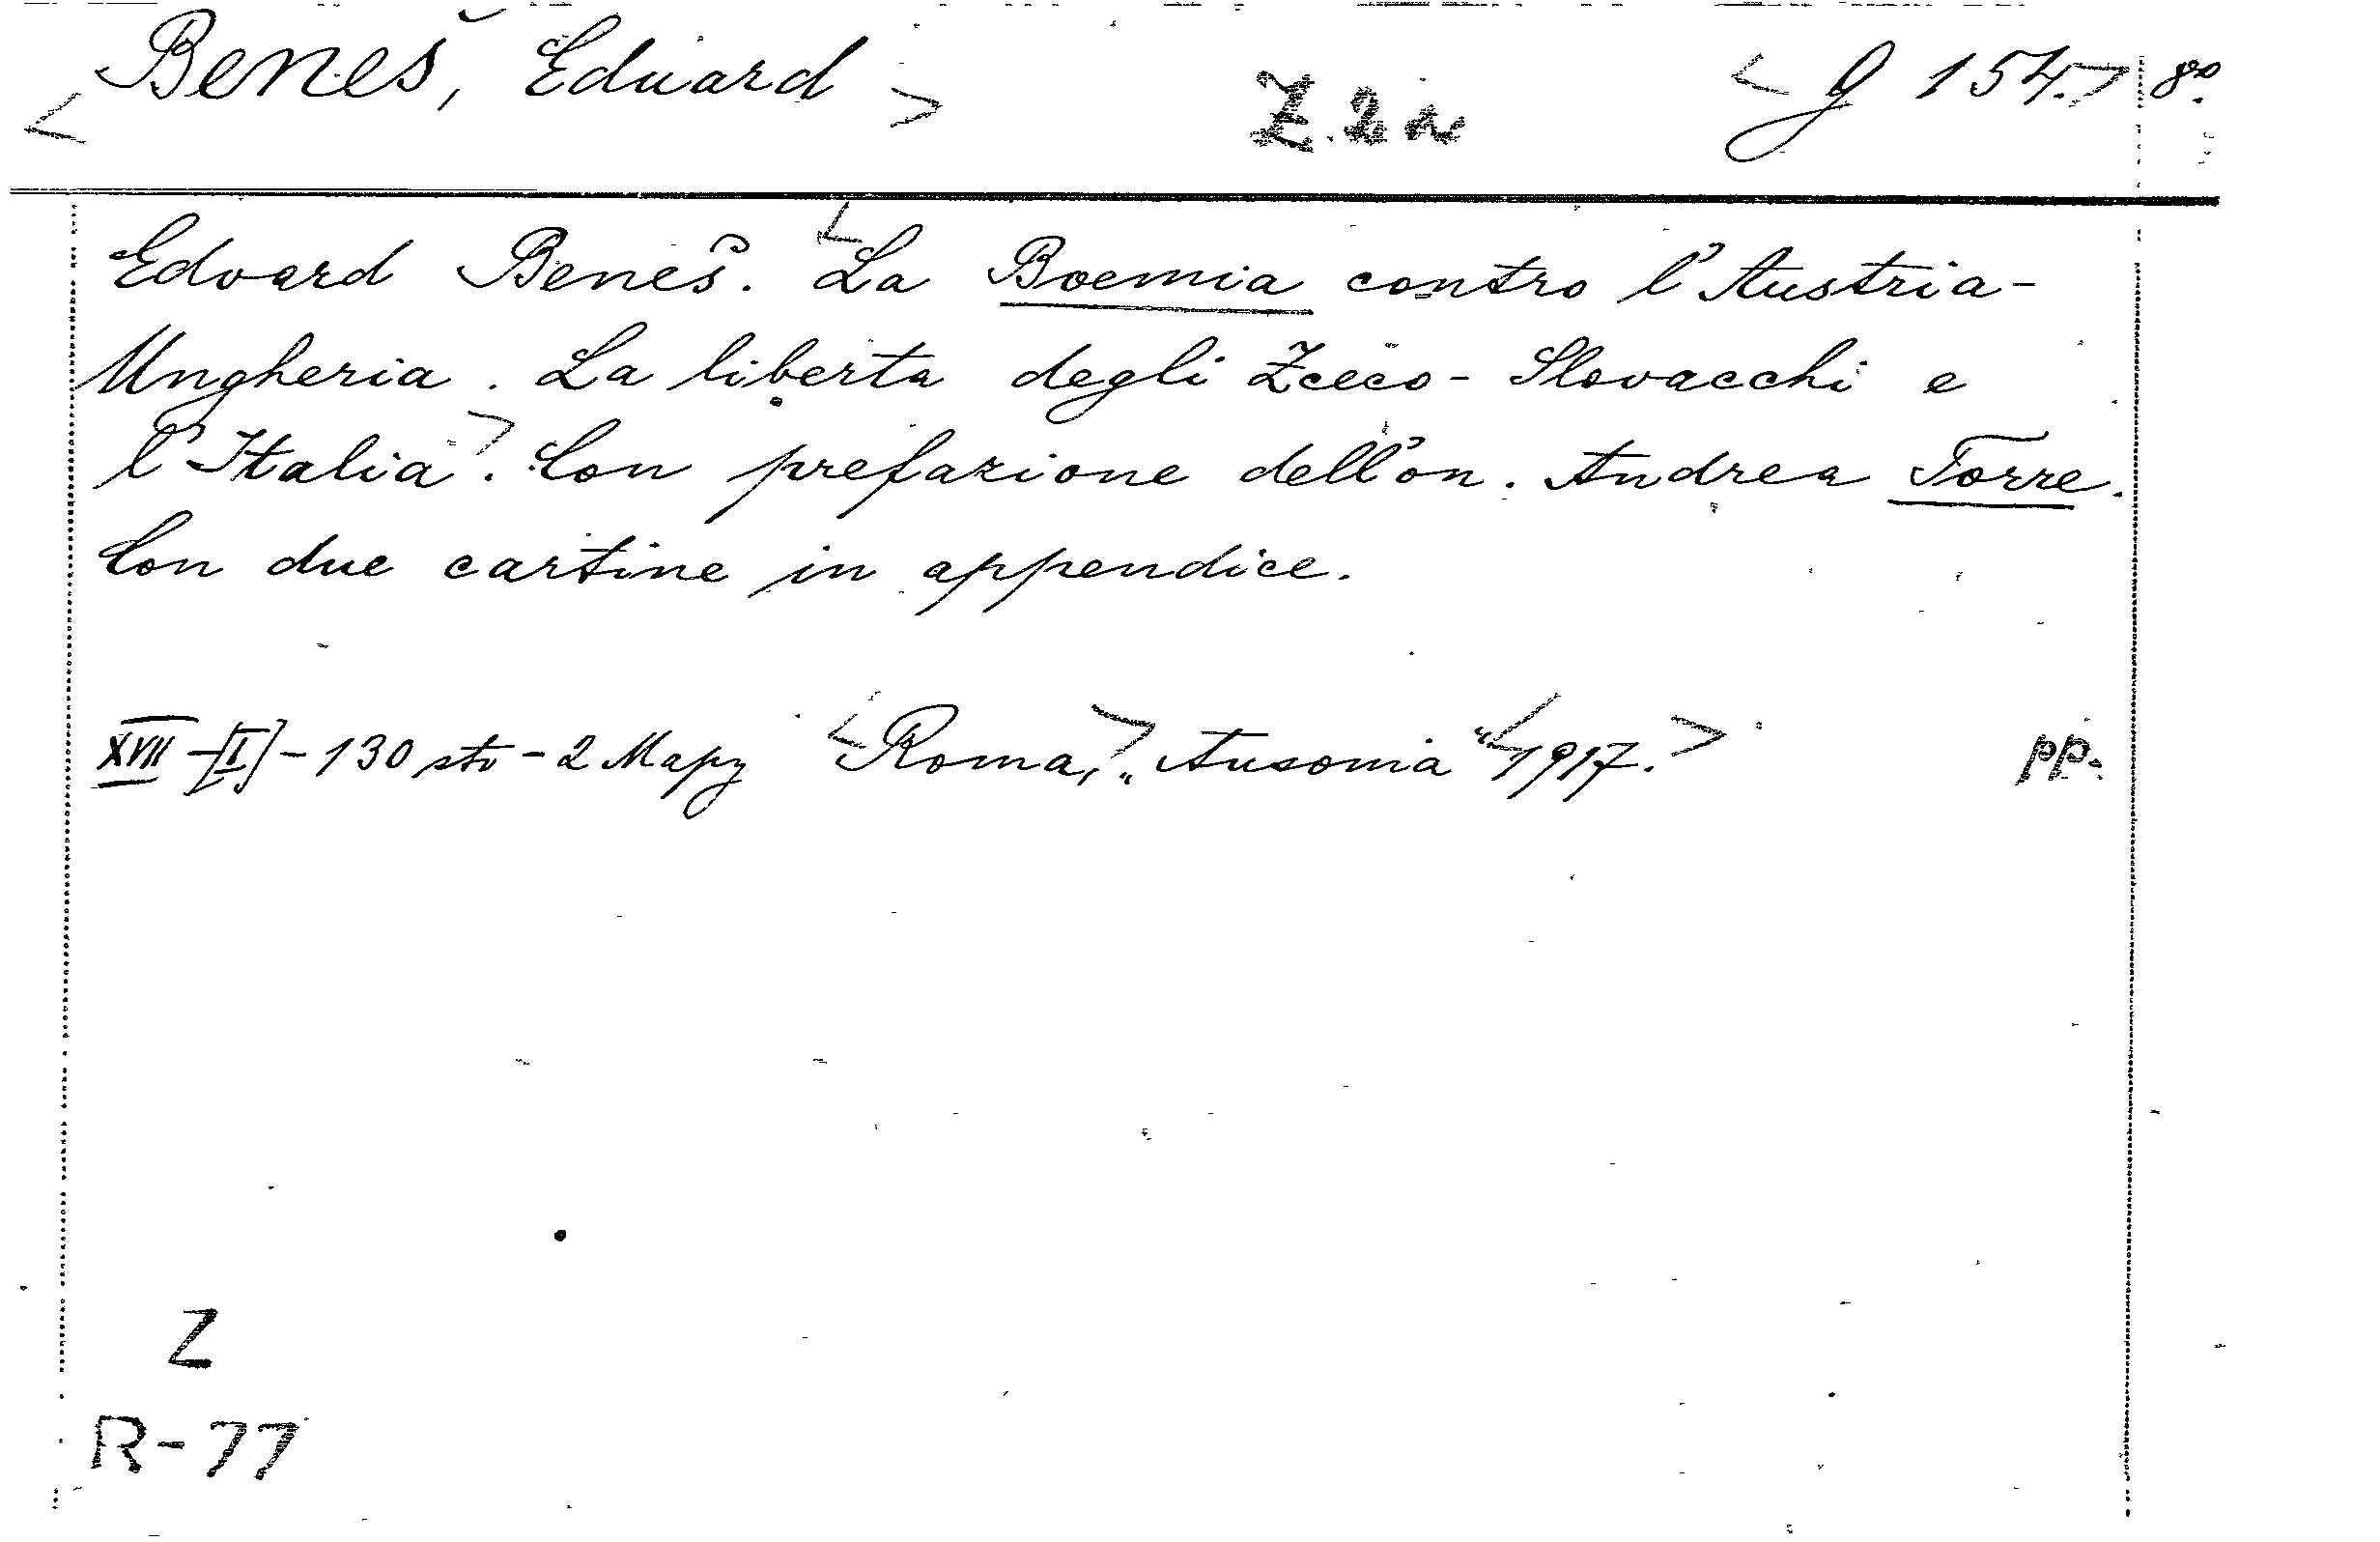 <Beneš, Eduard> Z.2a <G 154.> 8º.
Edvard Beneš. <La Boemia contro l'Austria-
Ungheria. La liberta degli Zceco-Slovacchi e
l'Italia>. Con prefazione dell'on. Andrea Torre.
Con due cartine in appendice.
XVII-[I]-130 str-2 Mapy <Roma,> „Ausonia" <1917.> pp.
Z
R-77